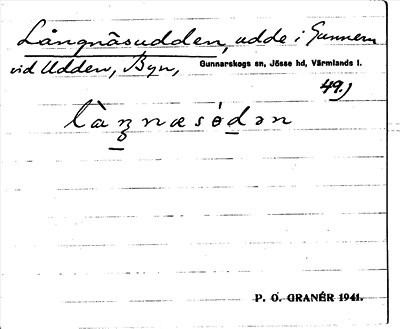 Långnäsudden, udde i Gunnern
vid Udden, Byn, Gunnarskogs sn, Jösse hd, Värmlands l.
49.)
làŋnæsódən
P. O. GRANÉR 1941.